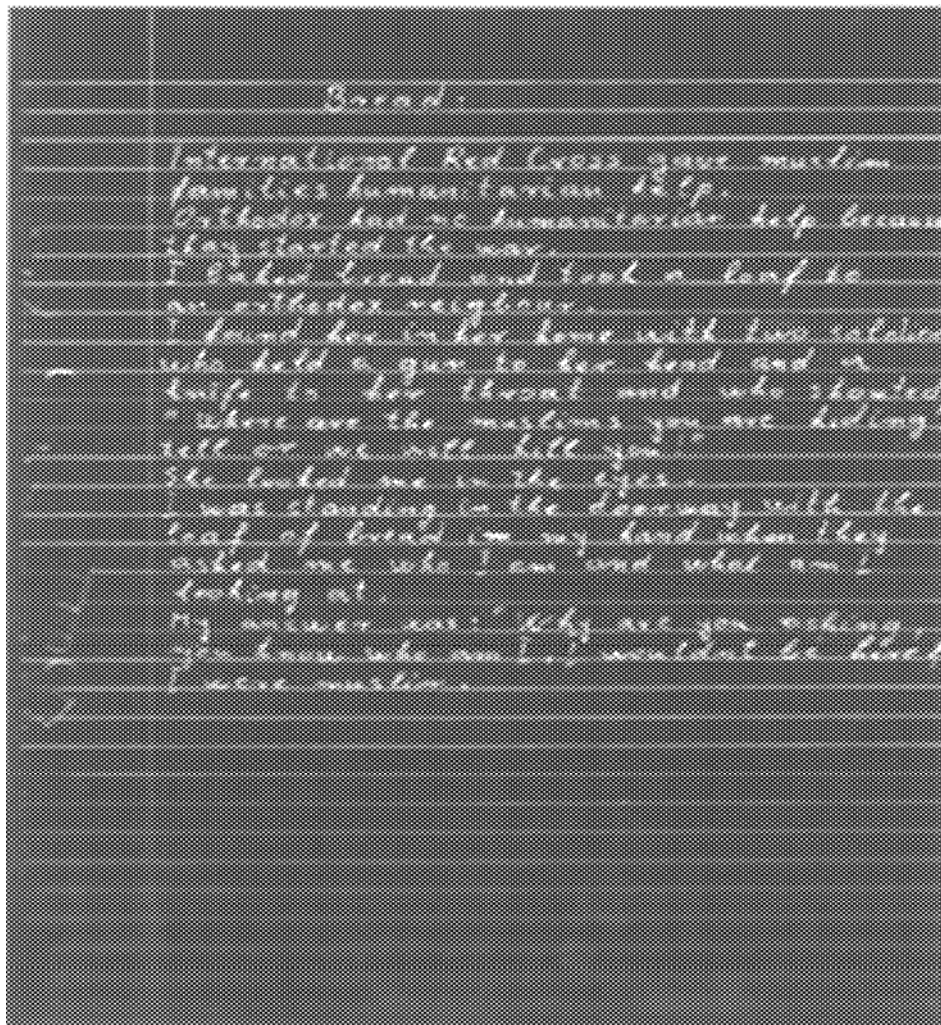 Bread.
International Red Cross gave muslim
families humanitarian help.
Orthodox had no humanitarian help because
they started the war.
I baked bread and took a loaf to
an orthodox neighbour.
I found her in her home with two
who held a gun to her head and a
knife to her throat and who shouted
"Where are the muslims you are hiding
tell or we will kill you"
She looked me in the eyes.
I was standing in the doorway with the
loaf of bread in my hand when they
asked me who I am and what am I
looking at.
My answer was: "Why are you asking,
you know who am I. I wouldnt be
I were muslim.